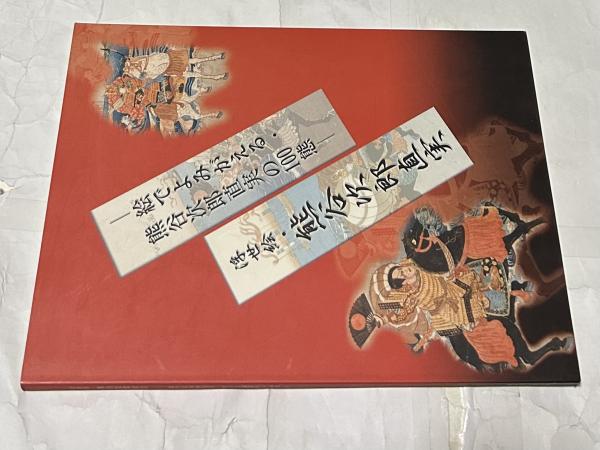 浮世絵・
熊谷次郎直実
―絵でよみがえる・
熊谷次郎直実の100態―